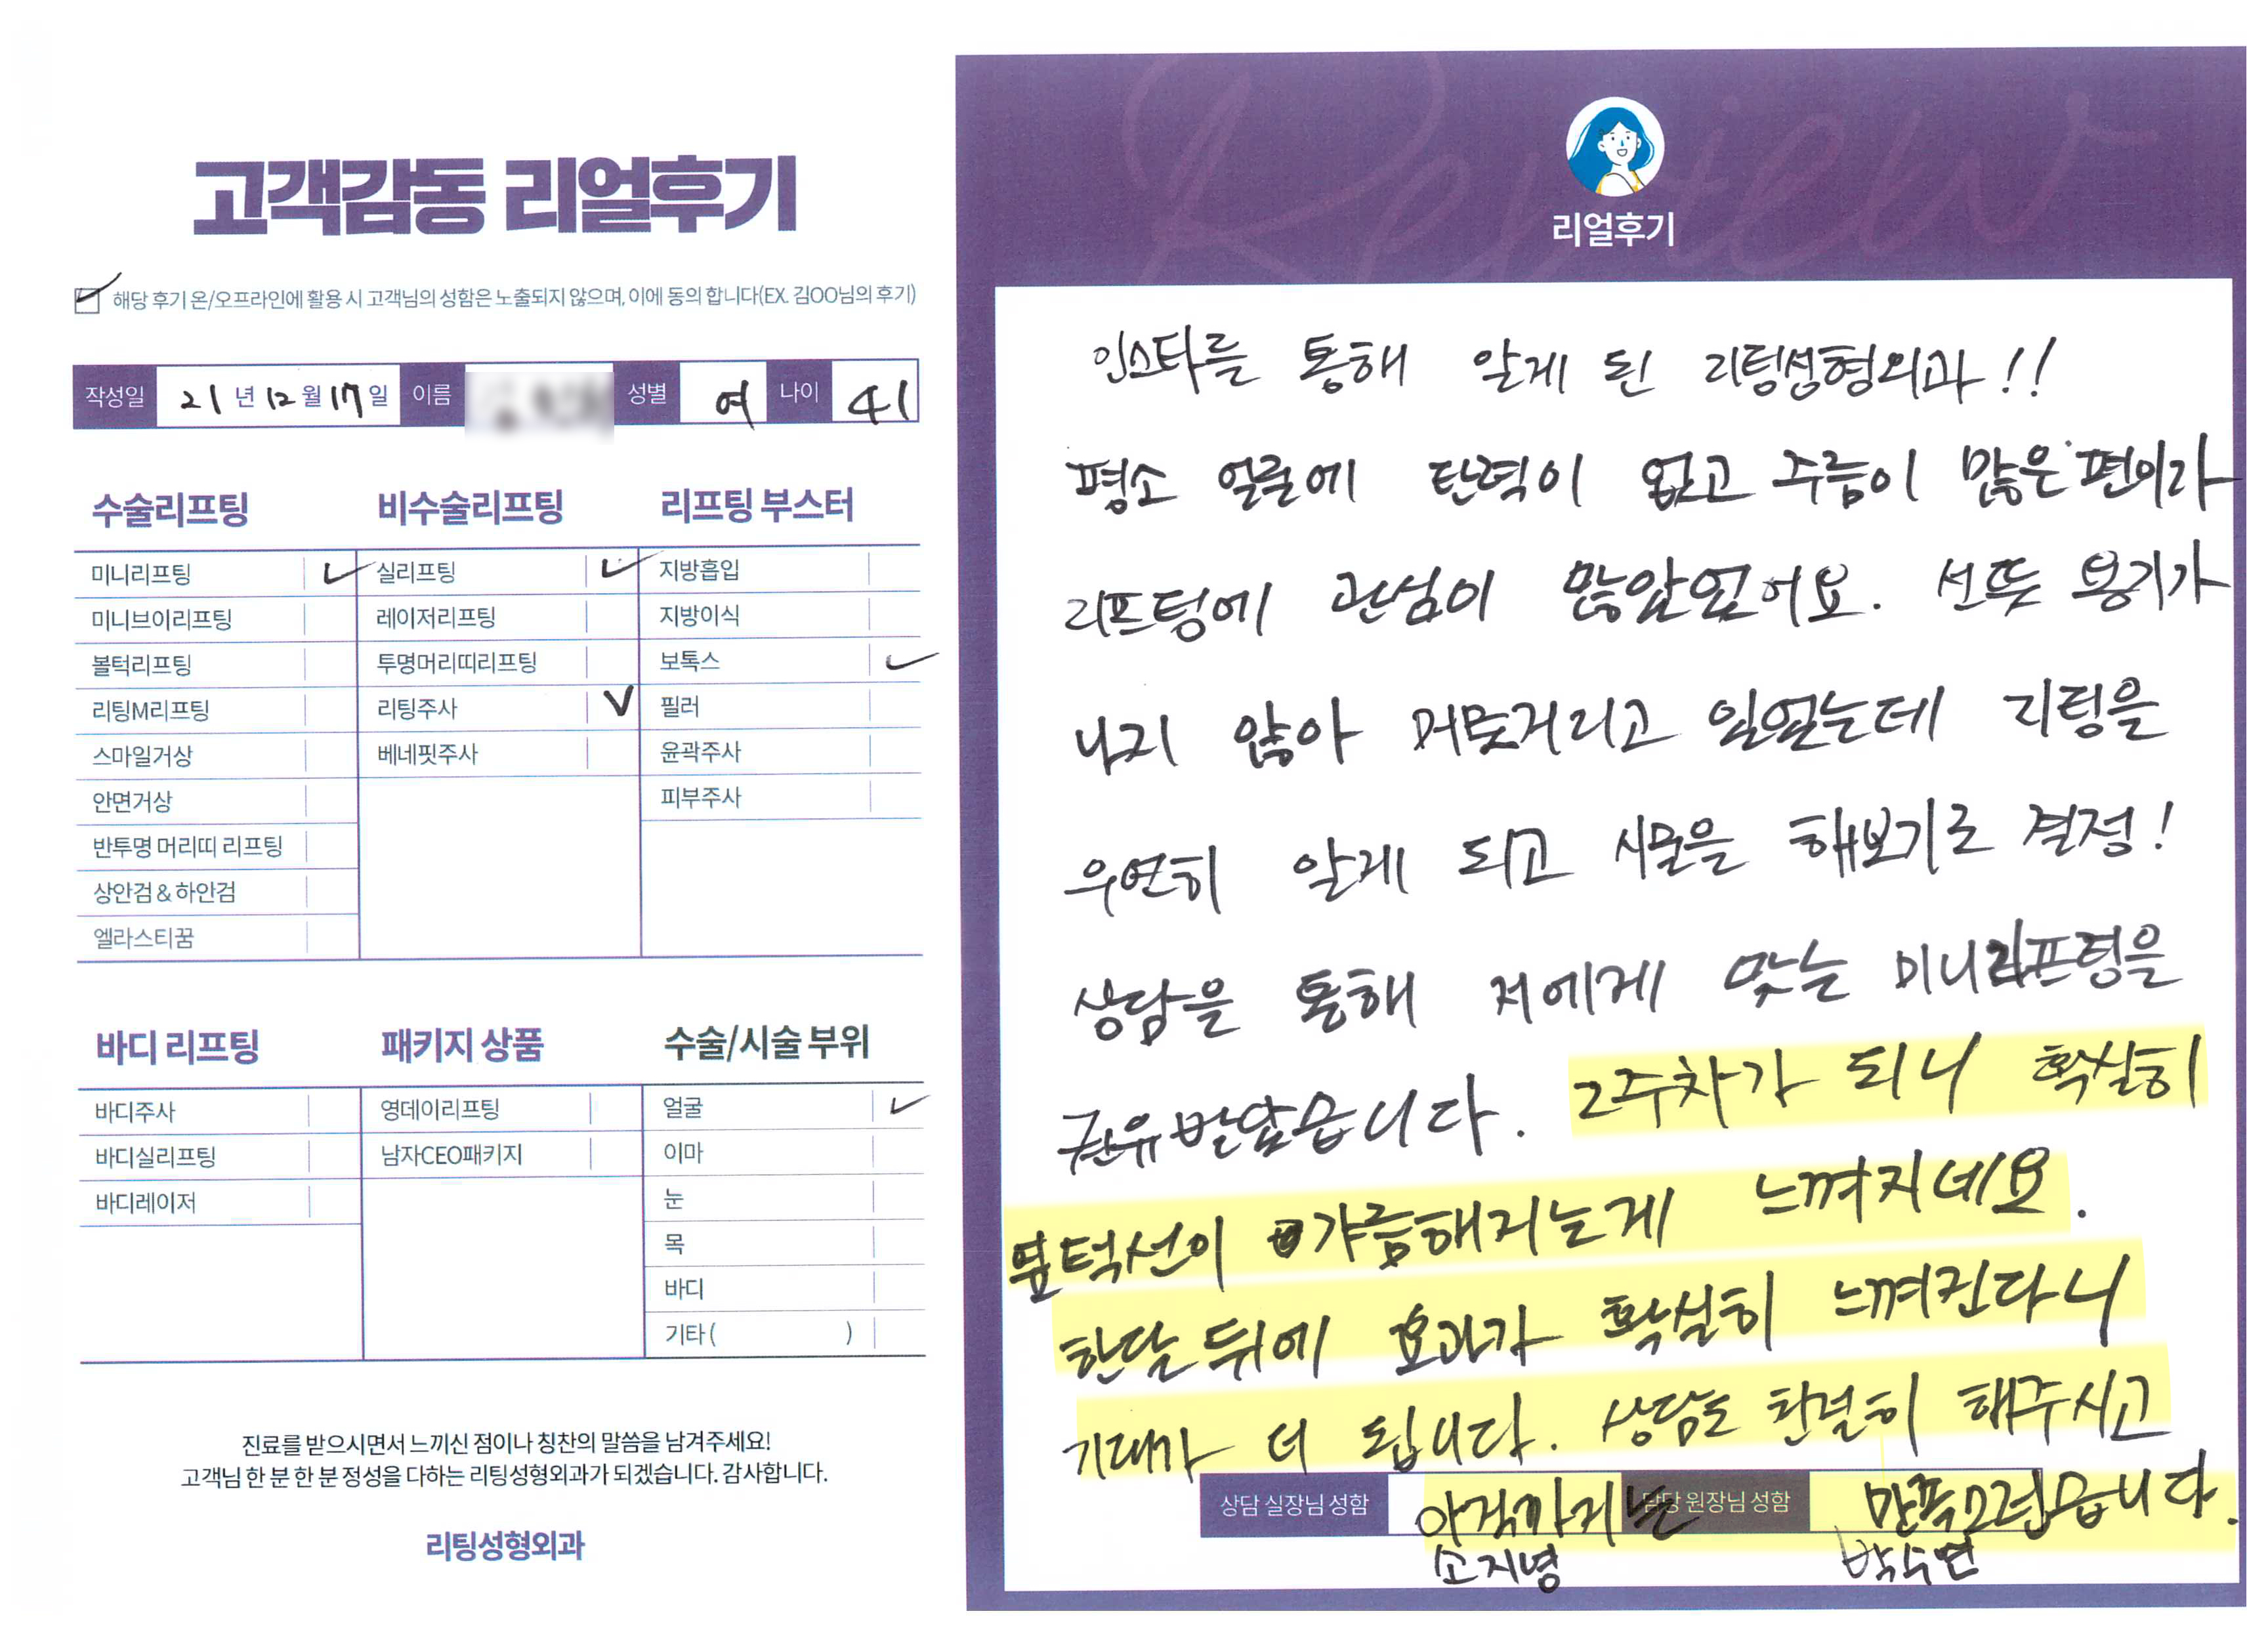 고객감동 리얼후기
해당 후기 온/오프라인에 활용 시 고객님의 성함은 노출되지 않으며, 이에 동의 합니다(EX. 김OO님의 후기)
작성일 21년 12월 17일 이름 성별 여 나이 41
수술리프팅
미니리프팅
미니브이리프팅
볼턱리프팅
리팅M리프팅
스마일거상
안면거상
반투명 머리띠 리프팅
상안검 & 하안검
엘라스티꿈
비수술리프팅
실리프팅
레이저리프팅
투명머리띠리프팅
리팅주사
베네핏주사
리프팅 부스터
지방흡입
지방이식
보톡스
필러
윤곽주사
피부주사
바디 리프팅
바디주사
바디실리프팅
바디레이저
패키지 상품
영데이리프팅
남자CEO패키지
수술/시술 부위
얼굴
이마
눈
목
바디
기타 ( )
진료를 받으시면서 느끼신 점이나 칭찬의 말씀을 남겨주세요!
고객님 한 분 한 분 정성을 다하는 리팅성형외과가 되겠습니다. 감사합니다.
리팅성형외과
Review
리얼후기
인스타를 통해 알게 된 리팅성형외과!!
평소 얼굴에 탄력이 없고 주름이 많은 편이라
리프팅에 관심이 많았었어요. 선뜻 용기가
나지 않아 머뭇거리고 있었는데 리팅을
우연히 알게 되고 시술을 해보기로 결정!
상담을 통해 저에게 맞는 미니리프팅을
권유받았습니다. 2주차가 되니 확실히
옆턱선이 갸름해지는게 느껴지네요.
한달 뒤에 효과가 확실히 느껴진다니
기대가 더 됩니다. 상담도 친절히 해주시고
아직까지는 만족스럽습니다.
상담 실장님 성함 소지녕 담당 원장님 성함 박수연